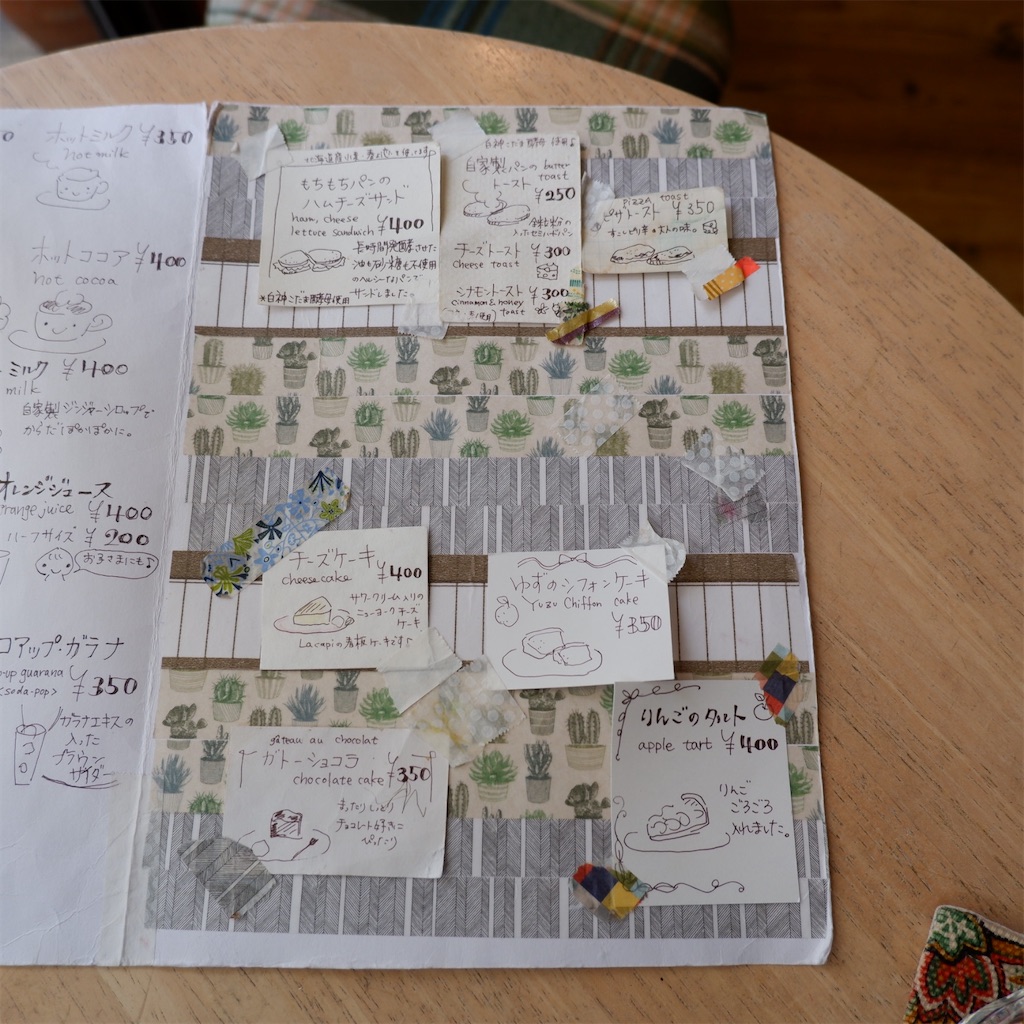 ホットミルク ¥350
hot milk
ホットココア ¥400
hot cocoa
ミルク ¥400
milk
自家製ジンジャーシロップで
からだぽかぽかに。
オレンジジュース
orange juice ¥400
ハーフサイズ ¥200
お子さまにも♪
コアップ・ガラナ
-up guarana
<soda-pop> ¥350
ガラナエキスの
入った
ブラウン
サイダー
もちもちパンの
ハムチーズサンド
ham, cheese
lettuce sandwich ¥400
長時間発酵させた
油も砂糖も不使用
のヘルシーなパンで
サンドしました。
*白神こだま酵母使用
白神こだま酵母使用♪
自家製パンの butter
トースト toast
¥250
チーズトースト ¥300
cheese toast
シナモントースト ¥300
cinnamon & honey
toast
Pizza toast
ピザトースト ¥350
すこしピリ辛 大人の味。
チーズケーキ
cheese cake ¥400
サワークリーム入りの
ニューヨークチーズ
ケーキ
Lacapiの看板ケーキです♪
ゆずのシフォンケーキ
Yuzu Chiffon cake
¥350
gâteau au chocolat
ガトーショコラ
chocolate cake ¥350
まったりしっとり
チョコレート好きに
ぴったり
りんごのタルト
apple tart ¥400
りんご
ごろごろ
入れました。